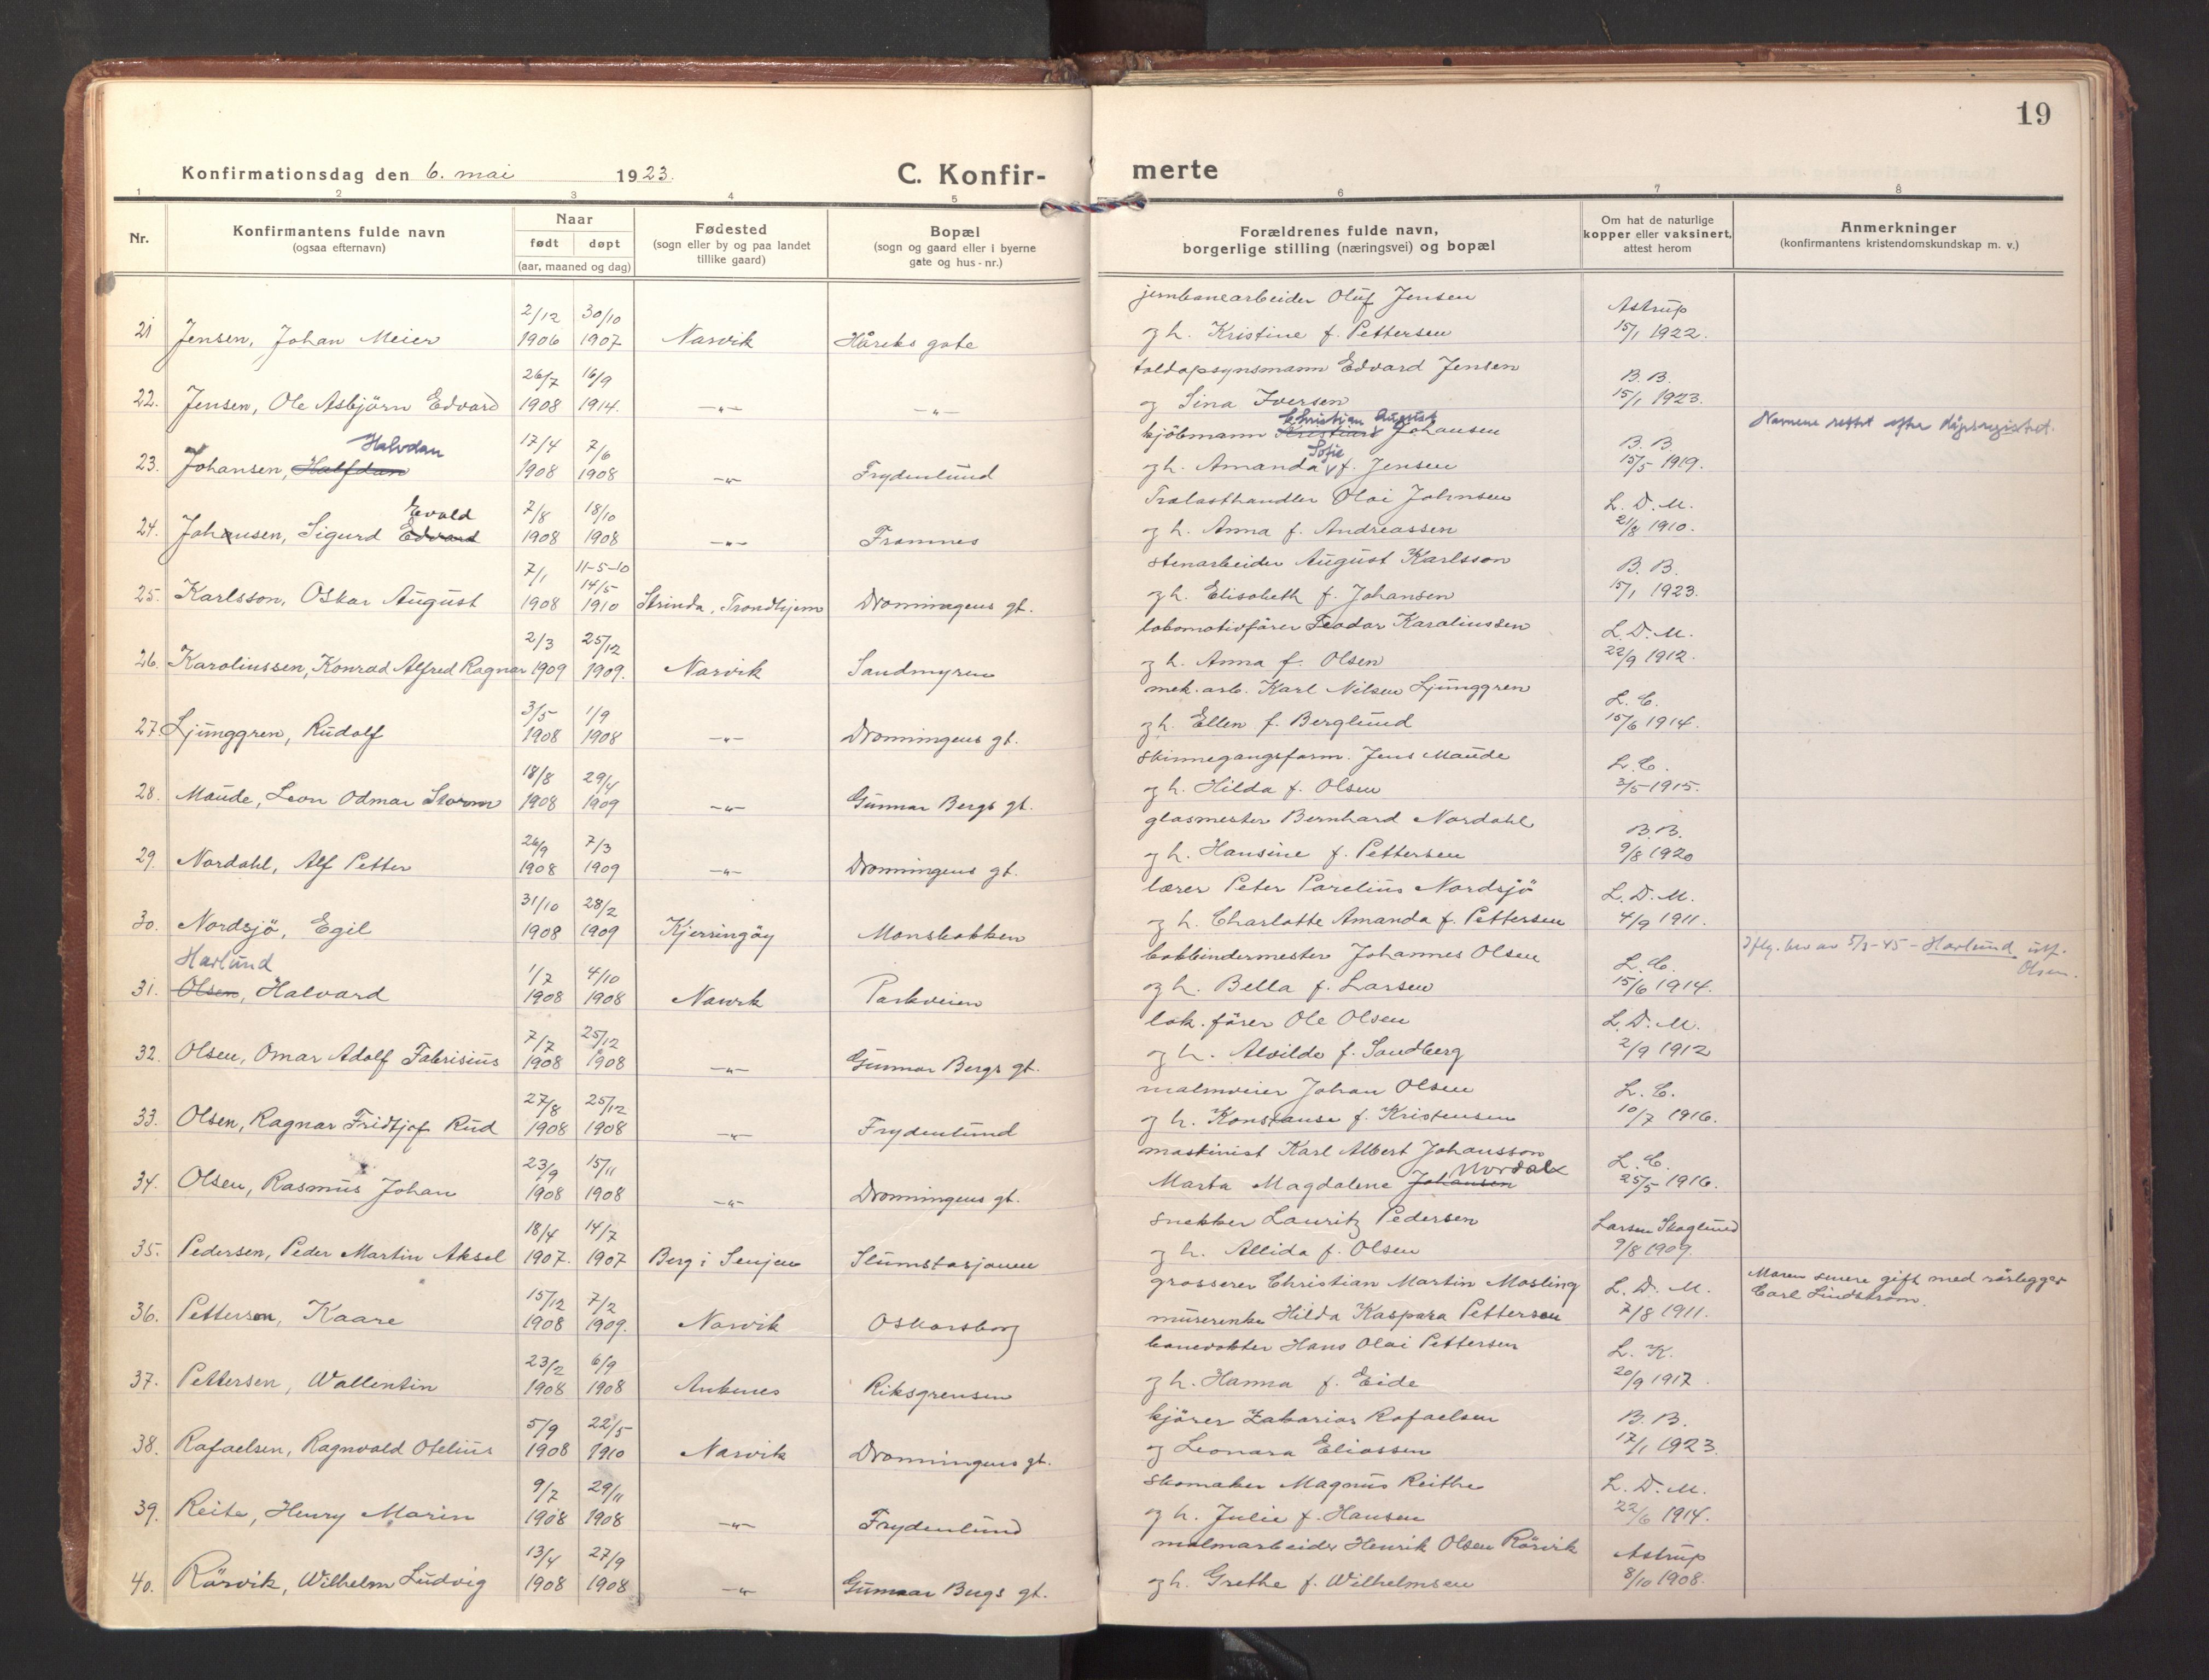 19
Konfirmationsdag den 6. mai 1923.
C. Konfir-
merte
1 2 3 4 5 6 7 8
Nr.
Konfirmantens fulde navn
(ogsaa efternavn)
Naar
født døpt
(aar, maaned og dag)
Fødested
(sogn eller by og paa landet
tillike gaard)
Bopæl
(sogn og gaard eller i byerne
gate og hus-nr.)
Forældrenes fulde navn,
borgerlige stilling (næringsvei) og bopæl
Om hat de naturlige
kopper eller vaksinert,
attest herom
Anmerkninger
(konfirmantens kristendomskundskap m. v.)
2/12 30/10 jernbanearbeider Oluf Jensen Astrup
21 Jensen, Johan Meier 1906 1907 Narvik Håreks gate og h. Kristine f. Pettersen 15/1 1922.
26/7 16/9 toldopsynsmann Edvard Jensen B. B.
22. Jensen, Ole Asbjörn Edvard 1908 1914. —"— —"— og Sina Iversen 15/1 1923.
Christian August
Halvdan 17/4 7/6 kjöbmann Kristian Johansen B. B. Navnene rettet efter dåpsregistret.
Sofie
23. Johansen, Halfdan 1908 1908 —"— Frydenlund og h. Amanda f. Jensen 15/5 1919.
Evald 7/8 18/10 Trælasthandler Olai Johnsen L. D. M.
24. Johansen, Sigurd Edvard 1908 1908 —"— Framnes og h. Anna f. Andreassen 21/8 1910.
7/1 11-5-10 14/5 stenarbeider August Karlsson B. B.
25. Karlsson, Oskar August 1908 1910 Strinda, Trondhjem Dronningens gt. og h. Elisabeth f. Johansen 15/1 1923.
2/3 25/12 lokomotivförer Teodor Karoliussen L. D. M.
26. Karoliussen, Konrad Alfred Ragnar 1909 1909. Narvik Sandmyren og h. Anna f. Olsen 22/9 1912.
3/5 1/9 mek. arb. Karl Nilsen Ljunggren L. C.
27. Ljunggren, Rudolf 1908 1908 —"— Dronningens gt. og h. Ellen f. Berglund 15/6 1914.
18/8 29/4 skinnegangsform. Jens Maude L. C.
28. Maude, Leon Odmar Storm 1908 1909 —"— Gunnar Bergs gt. og h. Hilda f. Olsen 3/5 1915.
26/9 7/3 glasmester Bernhard Nordahl B. B.
29. Nordahl, Alf Petter 1908 1909 —"— Dronningens gt. og h. Hansine f. Pettersen 9/8 1920
31/10 28/2 lærer Peter Parelius Nordsjö L. D. M.
30. Nordsjö, Egil 1908 1909 Kjerringöy Monsbakken og h. Charlotte Amanda f. Pettersen 4/9 1911.
Harlund 1/7 4/10 bokbindermester Johannes Olsen L. C. Iflg. bev av 5/3-45 - Harlund istf. Olsen.
31. Olsen, Halvard 1908 1908 Narvik Parkveien og h. Bella f. Larsen 15/6 1914.
7/7 25/12 lok. förer Ole Olsen L. D. M.
32. Olsen, Omar Adolf Fabrisius 1908 1908 —"— Gunnar Bergs gt. og h. Alvilde f. Sandberg 2/9 1912
27/8 25/12 malmveier Johan Olsen L. C.
33. Olsen, Ragnar Fridtjof Rud 1908 1908 —"— Frydenlund og h. Konstanse f. Kristensen 10/7 1916.
23/9 15/11 maskinist Karl Albert Johansson L. C.
Nordal
34. Olsen, Rasmus Johan 1908 1908 —"— Dronningens gt. Marta Magdalene Johansen 25/5 1916.
18/4 14/7 snekker Lauritz Pedersen Larsen Skoglund
35. Pedersen, Peder Martin Aksel 1907. 1907 Berg i Senjen Slumstasjonen og h. Allida f. Olsen 9/8 1909.
15/12 7/2 grosserer Christian Martin Mosling L. D. M. Moren senere gift med rörlegger
Carl Lindström.
36. Pettersen, Kaare 1908 1909. Narvik Oskarsborg murerenke Hilda Kaspara Pettersen 7/8 1911.
23/2 6/9 banevokter Hans Olai Pettersen L. K.
37. Pettersen, Wallentin 1908 1908 Ankenes Riksgrensen og h. Hanna f. Eide 20/9 1917.
5/9 22/5 kjörer Zakarias Rafaelsen B. B.
38. Rafaelsen, Ragnvald Otelius 1908 1910 Narvik Dronningens gt. og Leonara Eliassen 17/1 1923.
9/7 29/11 skomaker Magnus Reithe L. D. M.
39. Reite, Henry Marin 1908 1908 —"— Frydenlund og h. Julie f. Hansen 22/6 1914.
13/4 27/9 malmarbeider Henrik Olsen Rörvik Astrup
40. Rörvik, Wilhelm Ludvig 1908 1908 —"— Gunnar Bergs gt. og h. Grethe f. Wilhelmsen 8/10 1908.